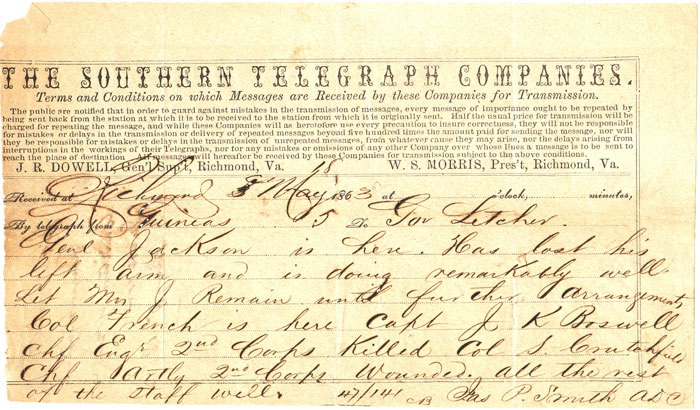 THE SOUTHERN TELEGRAPH COMPANIES.
Terms and Conditions on which Messages are Received by these Companies for Transmission.
The public are notified that in order to guard against mistakes in the transmission of messages, every message of importance ought to be repeated by
being sent back from the station at which it is to be received to the station from which it is originally sent. Half the usual price for transmission will be
charged for repeating the message, and while these Companies will as heretofore use every precaution to insure correctness, they will not be responsible
for mistakes or delays in the transmission or delivery of repeated messages beyond five hundred times the amount paid for sending the message, nor will
they be responsible for mistakes or delays in the transmission of unrepeated messages, from whatever cause they may arise, nor for delays arising from
interruptions in the workings of their Telegraphs, nor for any mistakes or omissions of any other Company over whose lines a message is to be sent to
reach the place of destination. All messages will hereafter be received by these Companies for transmission subject to the above conditions.
J. R. DOWELL, Gen'l Sup't, Richmond, Va. W. S. MORRIS, Pres't, Richmond, Va.
Received at May 1863 at o'clock, minutes,
By telegraph from Guineas 5 To Gov Letcher.
Genl Jackson is here. Has lost his
left arm and is doing remarkably well.
Let Mrs J. Remain until further arrangement
Col French is here Capt J K Boswell
Chf Engr 2nd Corps Killed Col S Crutchfield
Chf Artly 2nd Corps Wounded. all the rest
of the staff well. 47/141 Jas P. Smith ADC